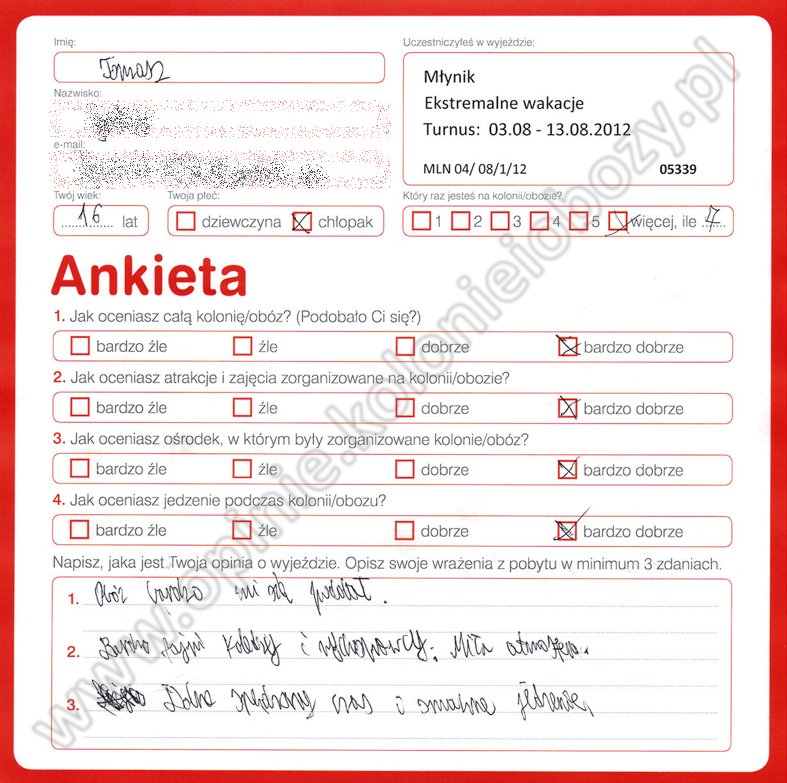 Imię:
Tomasz
Uczestniczyłeś w wyjeździe:
Młynik
Ekstremalne wakacje
Turnus: 03.08 - 13.08.2012
MLN 04/ 08/1/12 05339
Nazwisko:
e-mail:
Twój wiek:
16 lat
Twoja płeć:
dziewczyna chłopak
Który raz jesteś na kolonii/obozie?
1 2 3 4 5 więcej, ile 7
Ankieta
1. Jak oceniasz całą kolonię/obóz? (Podobało Ci się?)
bardzo źle źle dobrze bardzo dobrze
2. Jak oceniasz atrakcje i zajęcia zorganizowane na kolonii/obozie?
bardzo źle źle dobrze bardzo dobrze
3. Jak oceniasz ośrodek, w którym były zorganizowane kolonie/obóz?
bardzo źle źle dobrze bardzo dobrze
4. Jak oceniasz jedzenie podczas kolonii/obozu?
bardzo źle źle dobrze bardzo dobrze
Napisz, jaka jest Twoja opinia o wyjeździe. Opisz swoje wrażenia z pobytu w minimum 3 zdaniach.
1. Obóz bardzo mi się podobał.
2. Bardzo fajni koledzy i wychowawcy. Miła atmosfera.
3. spędzony czas i smaczne jedzenie.
www.opinie.kolonieiobozy.pl